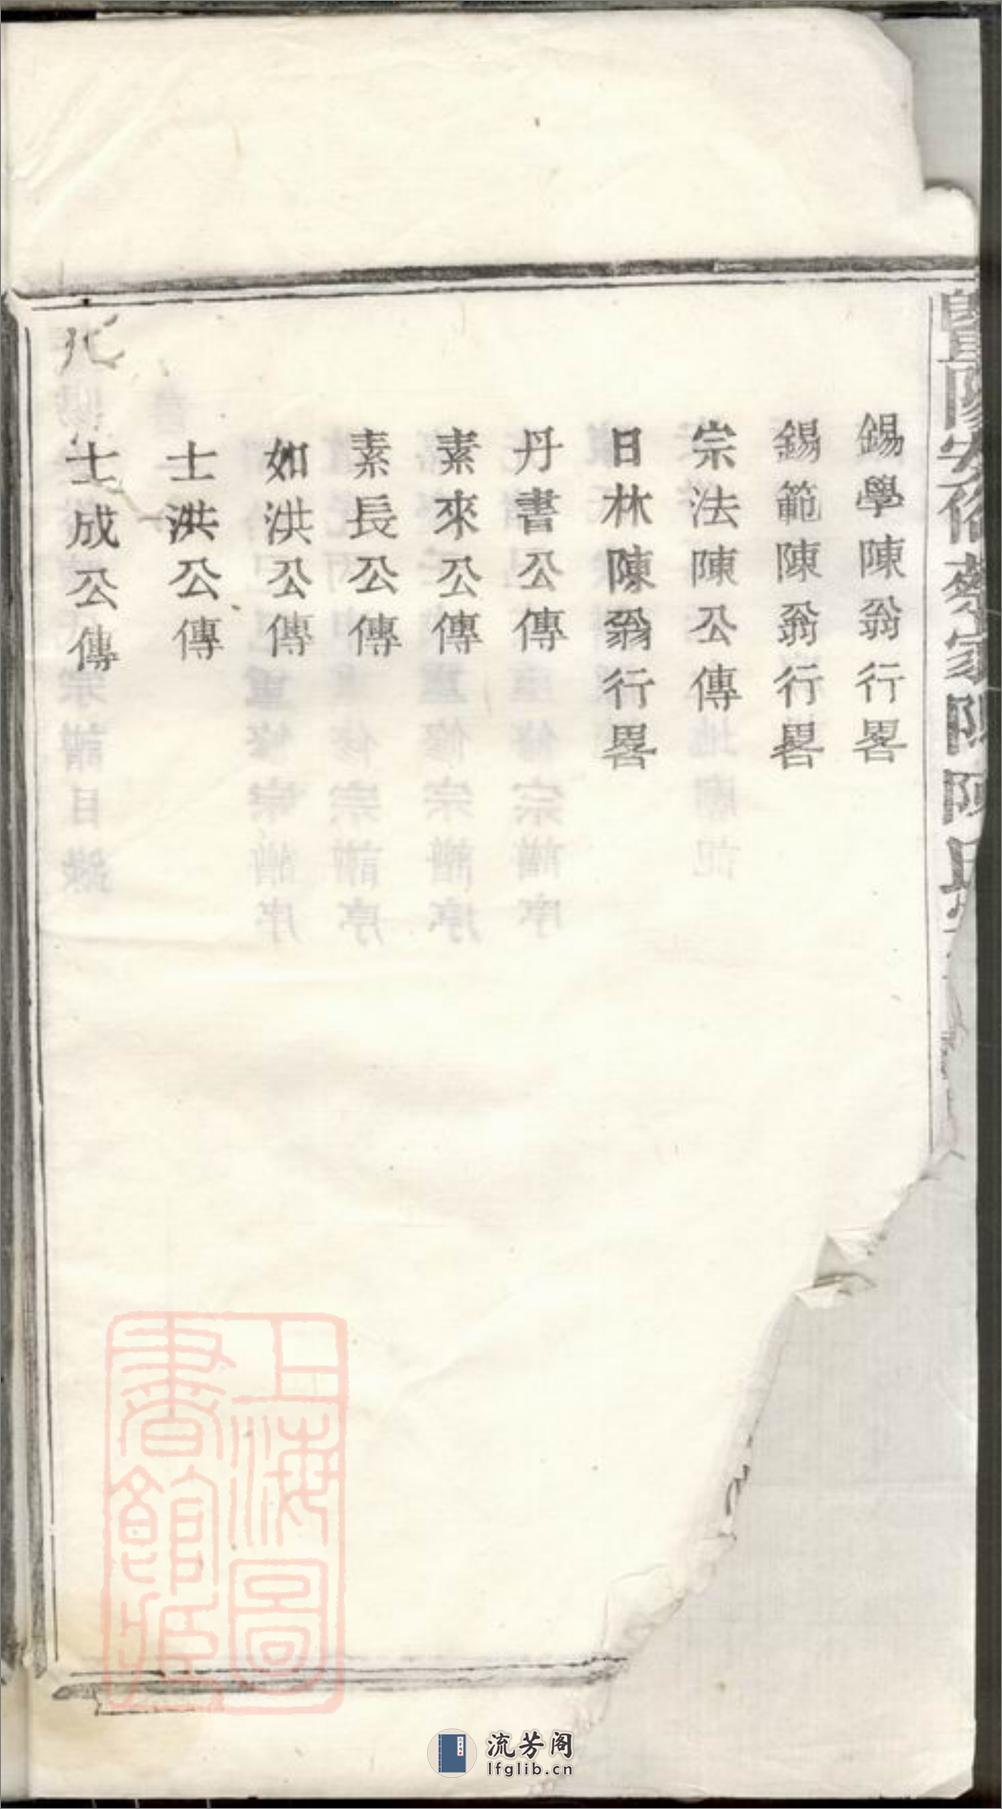 暨陽安俗蔡家陳陳氏
錫學陳翁行畧
錫範陳翁行畧
宗法陳公傳
日林陳翁行畧
丹書公傳
素來公傳
素長公傳
如洪公傳
士洪公傳
士成公傳
上海圖
書館藏
流芳阁
lfglib.cn